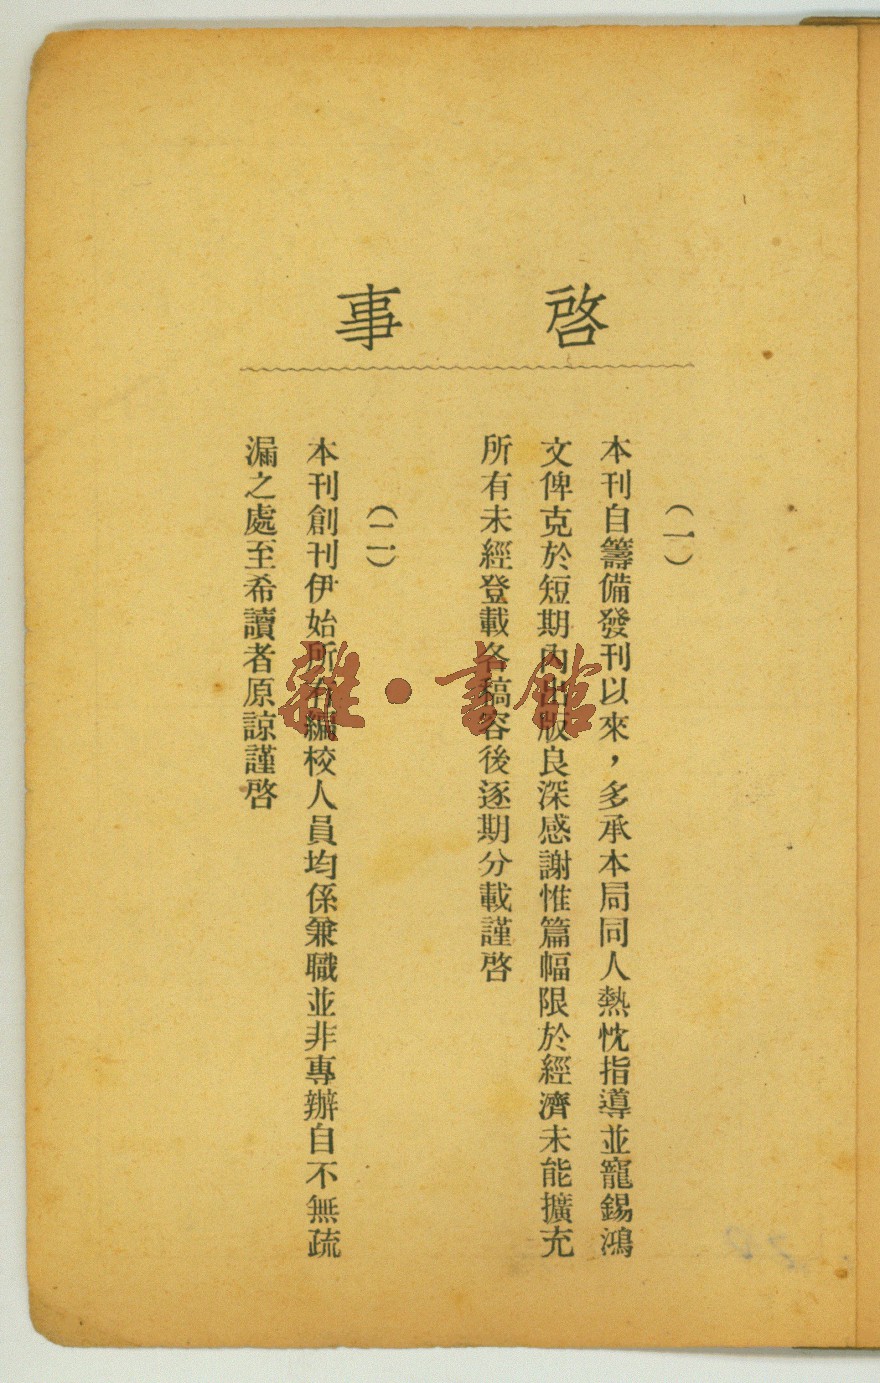 啓事
(一)
本刊自籌備發刊以來，多承本局同人熱忱指導並寵錫鴻
文俾克於短期內出版良深感謝惟篇幅限於經濟未能擴充
所有未經登載各稿容後逐期分載謹啓
(二)
本刊創刊伊始所有編校人員均係兼職並非專辦自不無疏
漏之處至希讀者原諒謹啓
雜·書館